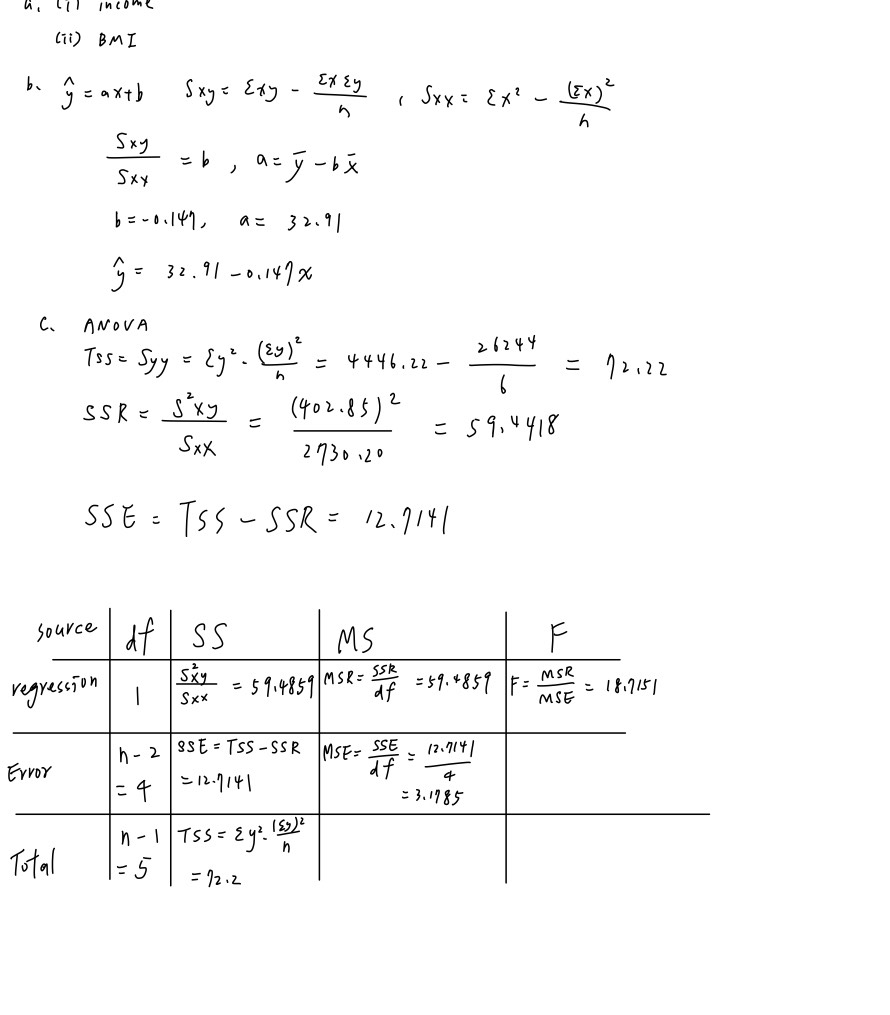 a. (i) income
(ii) BMI
b. ŷ = ax+b Sxy = Σxy - ΣxΣy/n , Sxx = Σx² - (Σx)²/n
Sxy/Sxx = b , a = ȳ - bx̄
b = -0.147, a = 32.91
ŷ = 32.91 - 0.147x
c. ANOVA
TSS = Syy = Σy² - (Σy)²/n = 4446.22 - 26244/6 = 72.22
SSR = S²xy/Sxx = (402.85)²/2730.20 = 59.4418
SSE = TSS - SSR = 12.7141
source df SS MS F
regression 1 S²xy/Sxx = 59.4859 MSR = SSR/df = 59.4859 F = MSR/MSE = 18.7151
Error n-2 = 4 SSE = TSS - SSR = 12.7141 MSE = SSE/df = 12.7141/4 = 3.1785
Total n-1 = 5 TSS = Σy² - (Σy)²/n = 72.2